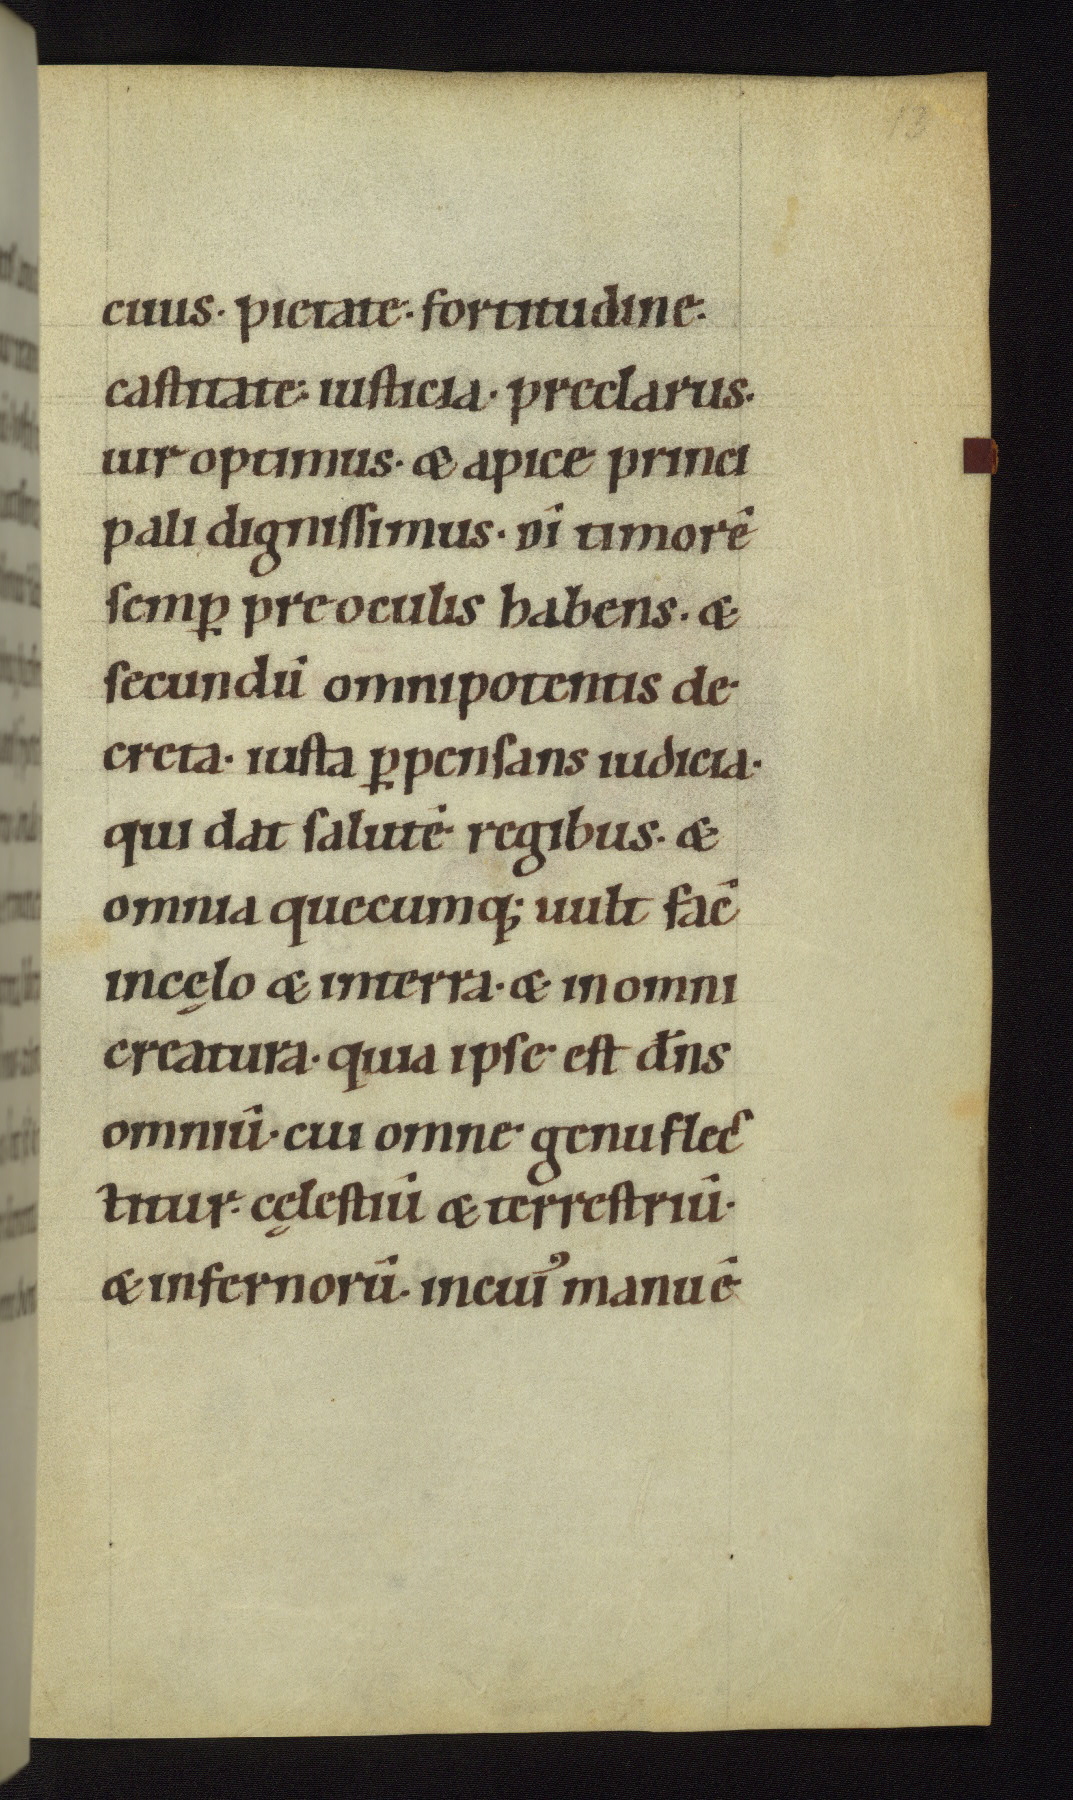 13
cuius· pietate· fortitudine·
castitate· iusticia· preclarus·
uir optimus· & apice princi
pali dignissimus· di timorē
semꝑ pre oculis habens· &
secundū omnipotentis de
creta· iusta ꝑpensans iudicia·
qui dat salutē regibus· &
omnia quecumq; uult facē
incęlo & interra· & in omni
creatura· quia ipse est dn̄s
omniū· cui omne genu flec
titur· cęlestiū & terrestriū·
& infernorū· incuiꝰ manu ē